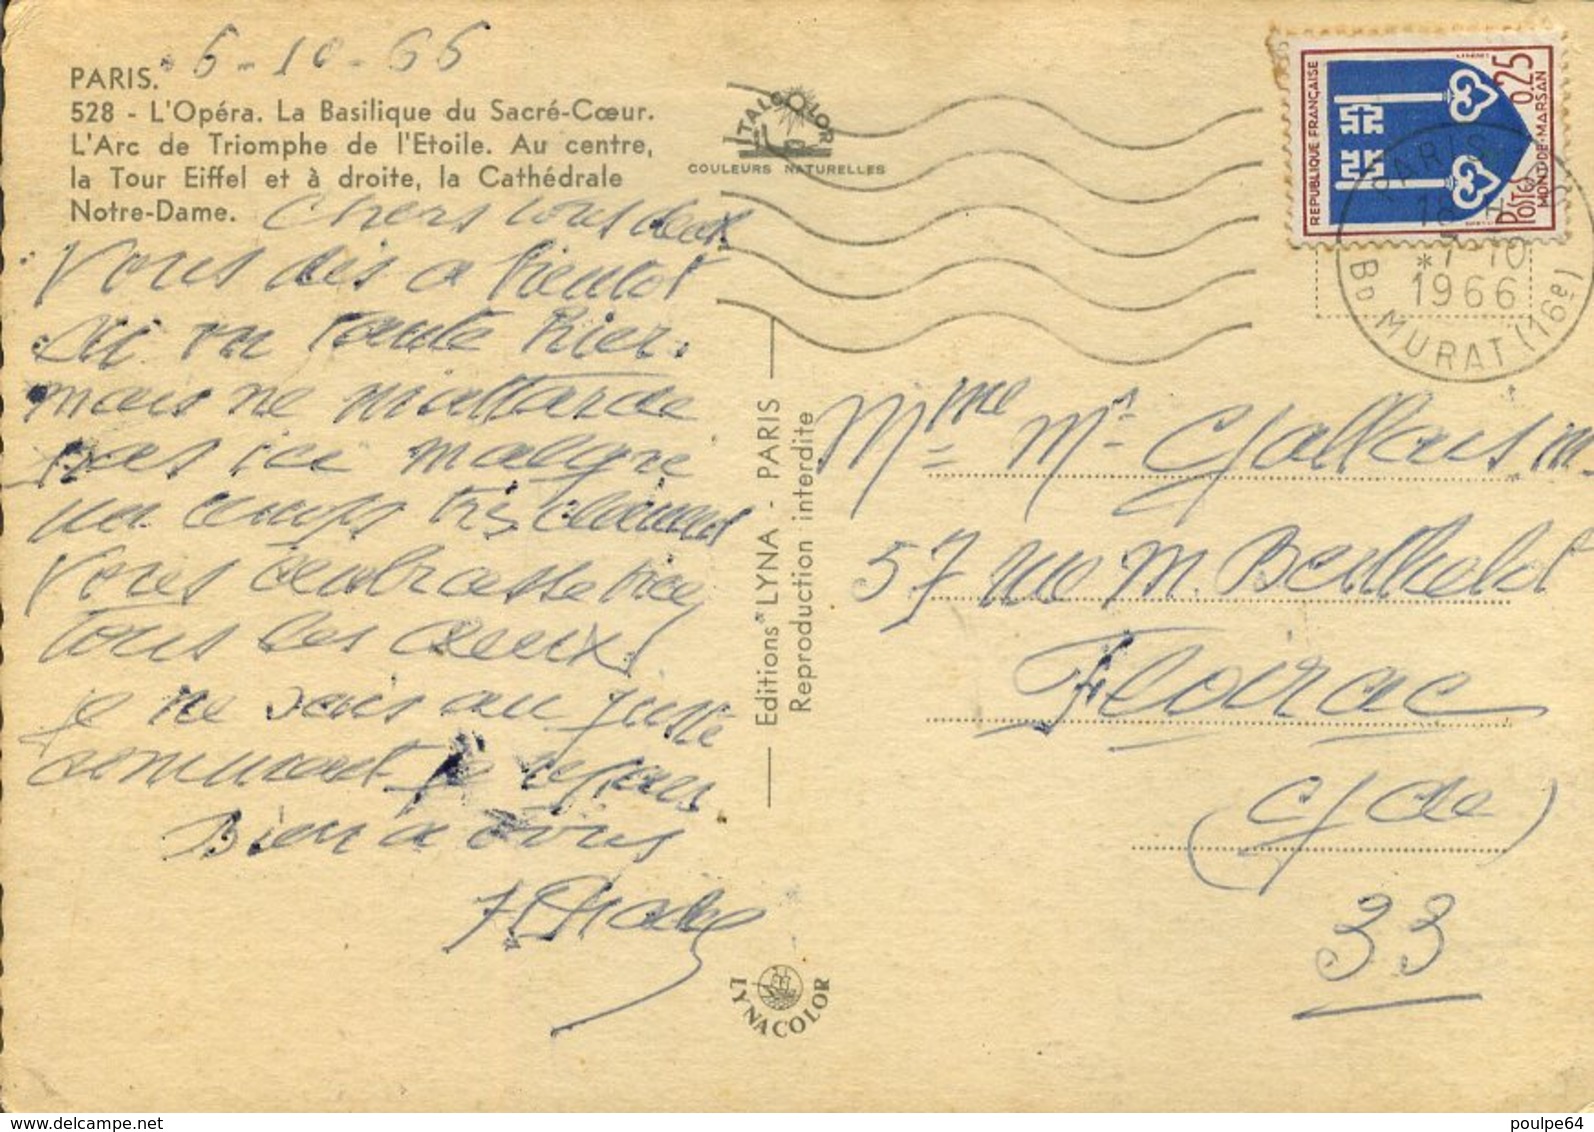 6-10-66
PARIS.
528 - L'Opéra. La Basilique du Sacré-Cœur.
L'Arc de Triomphe de l'Etoile. Au centre,
la Tour Eiffel et à droite, la Cathédrale
Notre-Dame.
Chers tous deux
Vous dis a bientot
Ai vu tante hier.
mais ne m'attarde
pas ici malgre
un temps tres clement
Vous embrasse bien
tous les deux
je ne sais au juste
comment je repars
Bien a vous
ITALCOLOR
COULEURS NATURELLES
Editions LYNA - PARIS
Reproduction interdite
LYNACOLOR
REPUBLIQUE FRANÇAISE
0,25
Postes
MONT-DE-MARSAN
PARIS
18 H
*7-10
1966
BD MURAT (16e)
Mme Mr Gallais m.
57 rue M. Berthelot
Floirac
(Gde)
33
poulpe64